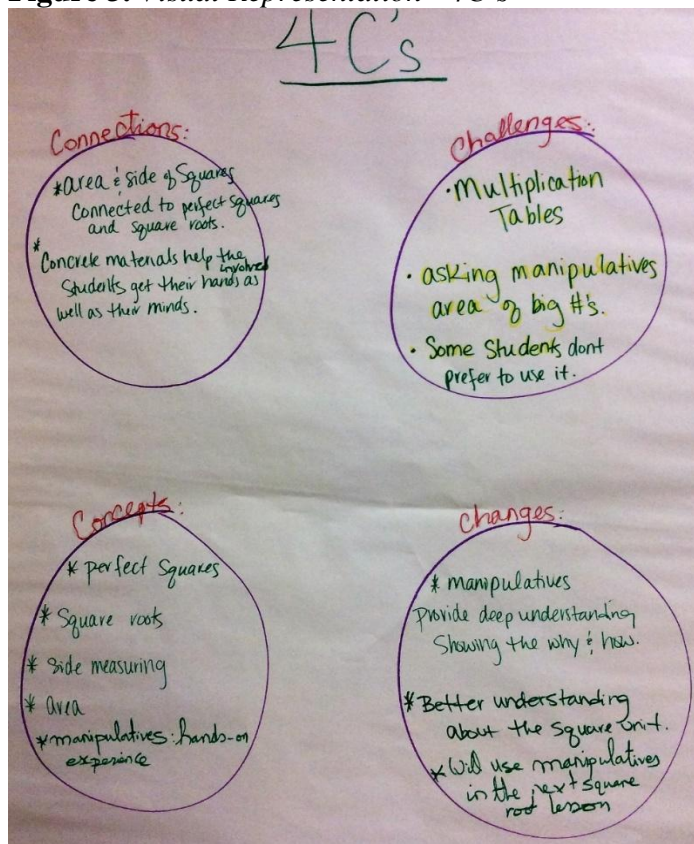 4C's
Connections:
*area & side of Squares
Connected to perfect squares
and square roots.
*
Concrete materials help the
involved
Students get their hands as
well as their minds.
Challenges:
·Multiplication
Tables
· asking manipulatives
area of big #'s.
· Some Students dont
prefer to use it.
Concepts:
* perfect Squares
* Square roots
* Side measuring
* area
*manipulatives: hands-on
experince
Changes:
* manipulatives
Provide deep understanding
Showing the why & how.
* Better understanding
about the square unit.
* Will use manipulatives
in the next square
root lesson